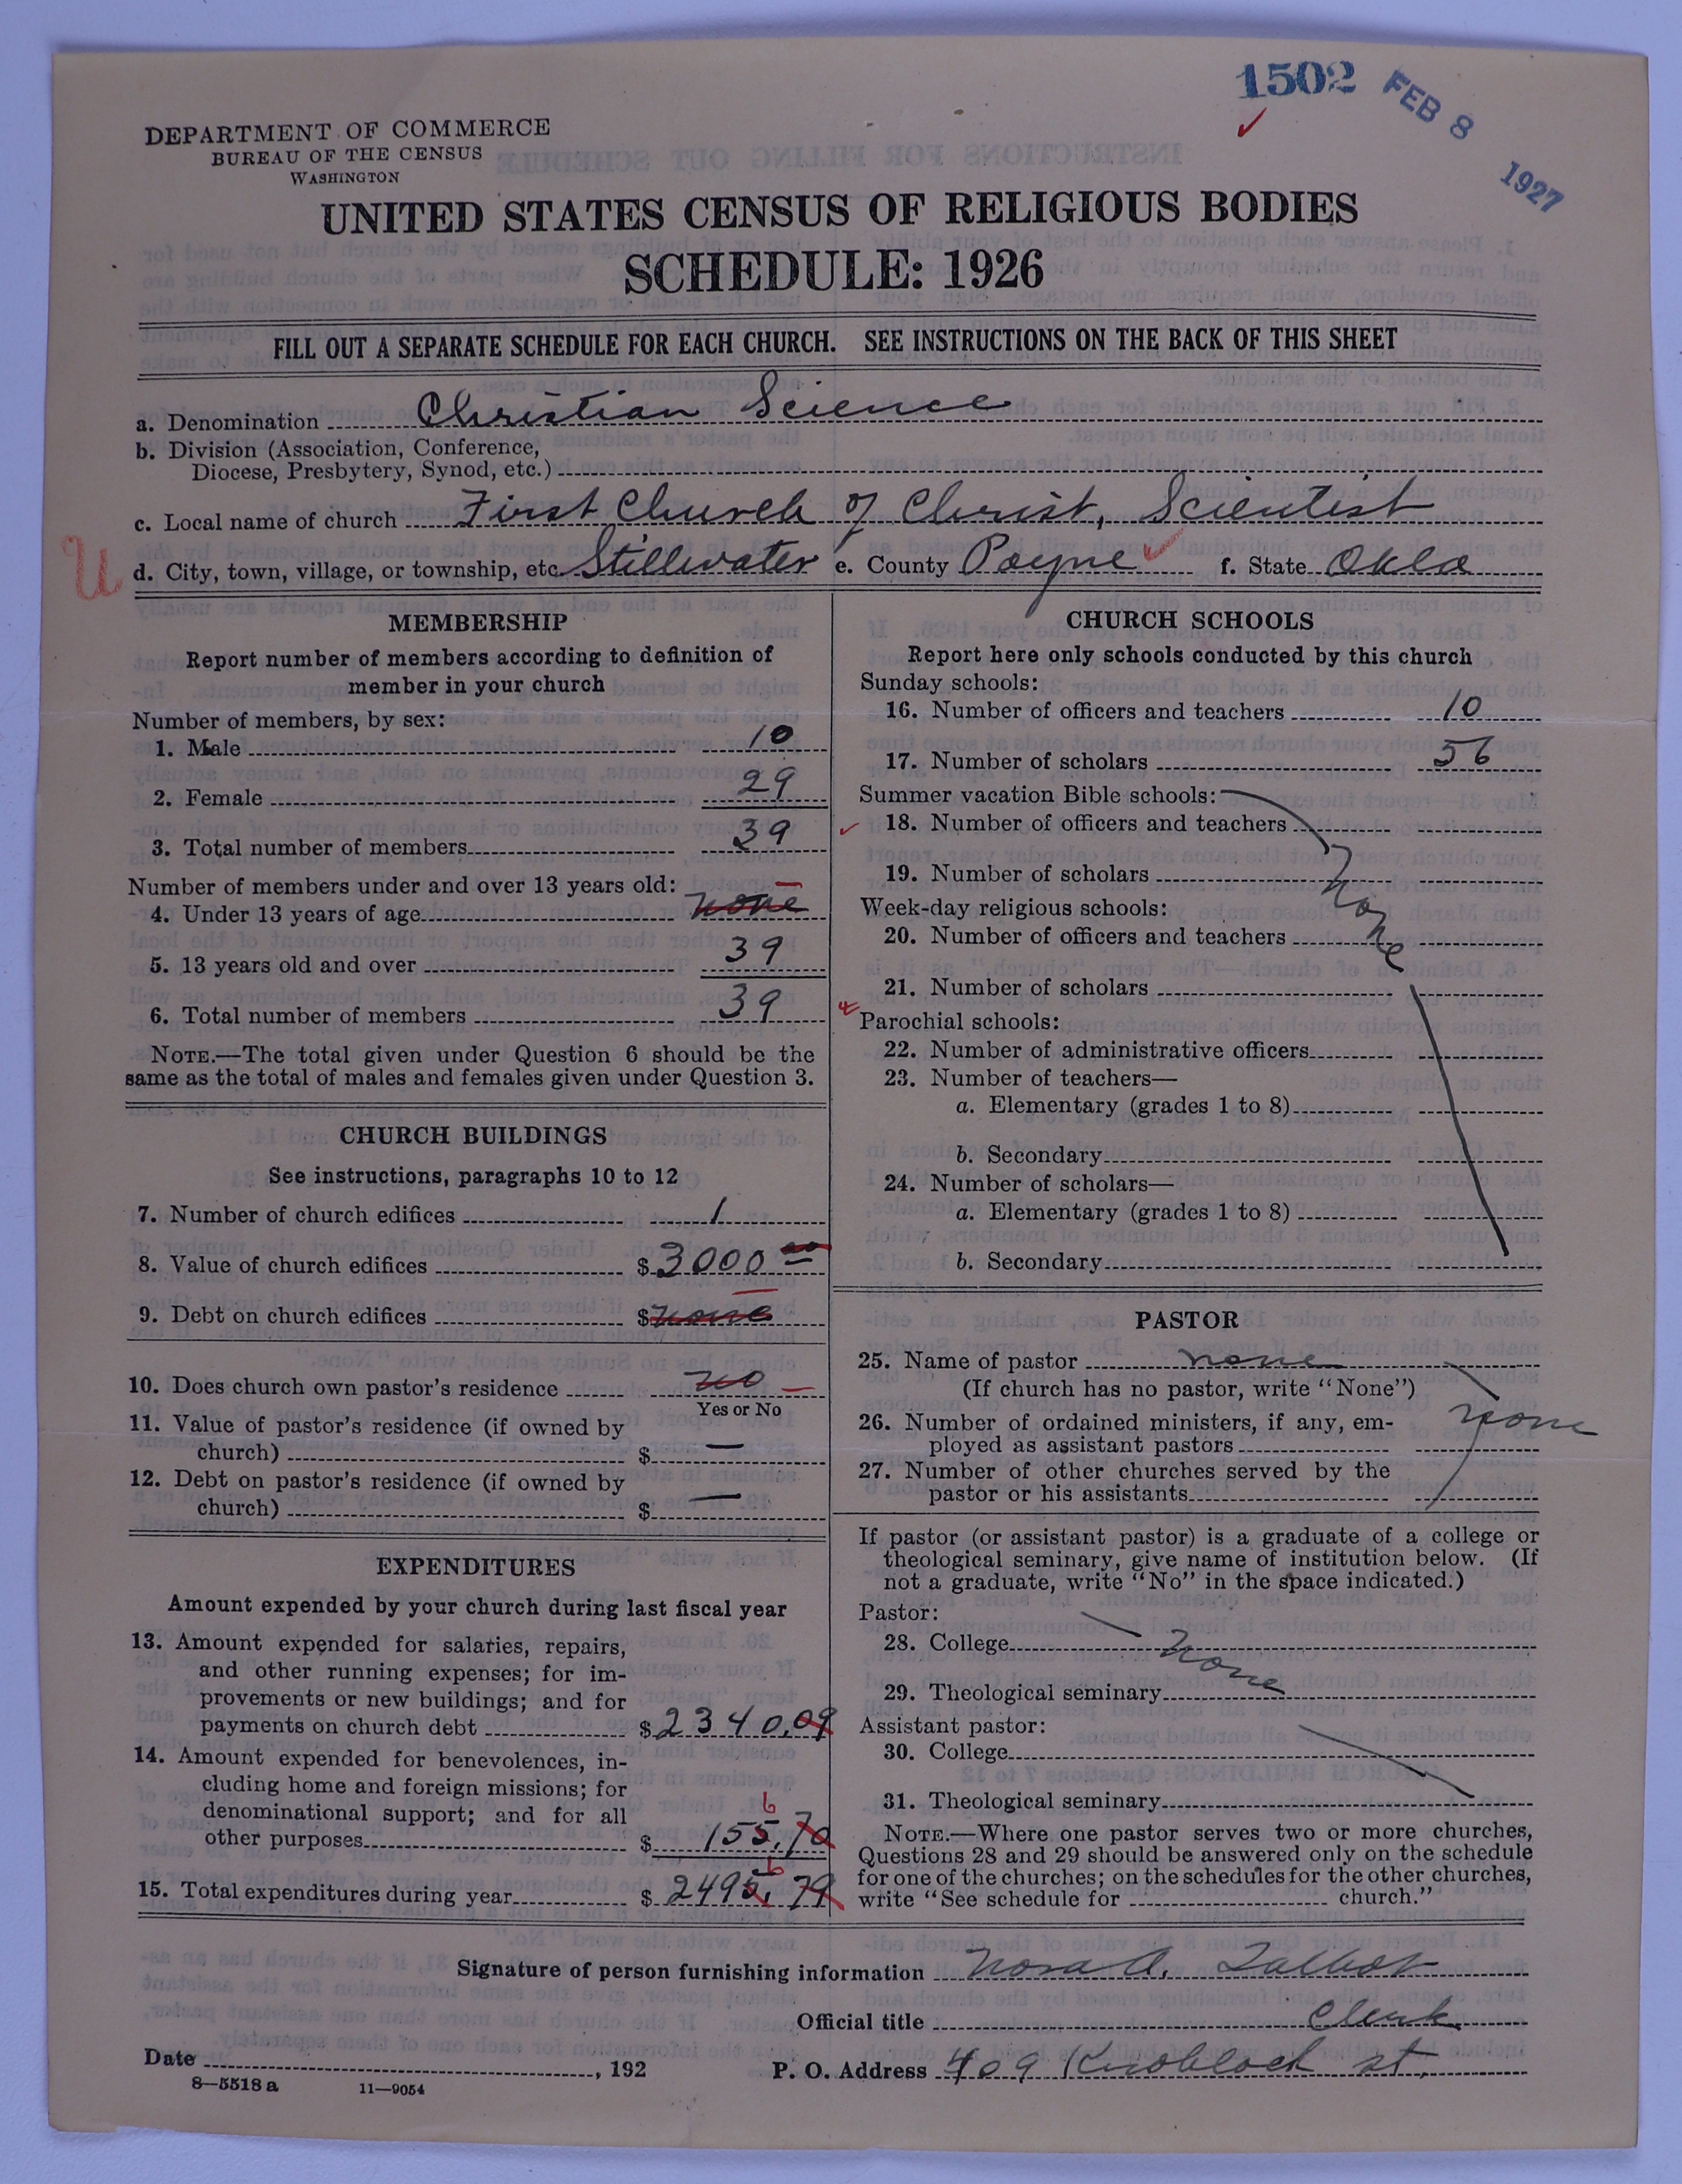 1502 FEB 8 1927
DEPARTMENT OF COMMERCE
BUREAU OF THE CENSUS
WASHINGTON
UNITED STATES CENSUS OF RELIGIOUS BODIES
SCHEDULE: 1926
FILL OUT A SEPARATE SCHEDULE FOR EACH CHURCH. SEE INSTRUCTIONS ON THE BACK OF THIS SHEET
a. Denomination Christian Science
b. Division (Association, Conference,
Diocese, Presbytery, Synod, etc.)
c. Local name of church First Church of Christ, Scientist
U d. City, town, village, or township, etc. Stillwater e. County Payne f. State Okla
MEMBERSHIP
Report number of members according to definition of
member in your church
Number of members, by sex:
1. Male 10
2. Female 29
3. Total number of members 39
Number of members under and over 13 years old:
4. Under 13 years of age none
5. 13 years old and over 39
6. Total number of members 39
NOTE.—The total given under Question 6 should be the
same as the total of males and females given under Question 3.
CHURCH BUILDINGS
See instructions, paragraphs 10 to 12
7. Number of church edifices 1
8. Value of church edifices $ 3000 00
9. Debt on church edifices $ none
10. Does church own pastor's residence no
Yes or No
11. Value of pastor's residence (if owned by
church) $ —
12. Debt on pastor's residence (if owned by
church) $ —
EXPENDITURES
Amount expended by your church during last fiscal year
13. Amount expended for salaries, repairs,
and other running expenses; for im-
provements or new buildings; and for
payments on church debt $ 2340.09
14. Amount expended for benevolences, in-
cluding home and foreign missions; for
denominational support; and for all
6
other purposes $ 155.70
6
15. Total expenditures during year $ 2495.79
CHURCH SCHOOLS
Report here only schools conducted by this church
Sunday schools:
16. Number of officers and teachers 10
17. Number of scholars 56
Summer vacation Bible schools:
18. Number of officers and teachers
19. Number of scholars
None
Week-day religious schools:
20. Number of officers and teachers
21. Number of scholars
Parochial schools:
22. Number of administrative officers
23. Number of teachers—
a. Elementary (grades 1 to 8)
b. Secondary
24. Number of scholars—
a. Elementary (grades 1 to 8)
b. Secondary
PASTOR
25. Name of pastor none
(If church has no pastor, write "None")
26. Number of ordained ministers, if any, em-
ployed as assistant pastors none
27. Number of other churches served by the
pastor or his assistants
If pastor (or assistant pastor) is a graduate of a college or
theological seminary, give name of institution below. (If
not a graduate, write "No" in the space indicated.)
Pastor:
28. College none
29. Theological seminary
Assistant pastor:
30. College
31. Theological seminary
NOTE.—Where one pastor serves two or more churches,
Questions 28 and 29 should be answered only on the schedule
for one of the churches; on the schedules for the other churches,
write "See schedule for church."
Signature of person furnishing information Nora A. Talbot
Official title Clerk
Date , 192 P. O. Address 409 Knoblock st.
8—5518 a 11—9054